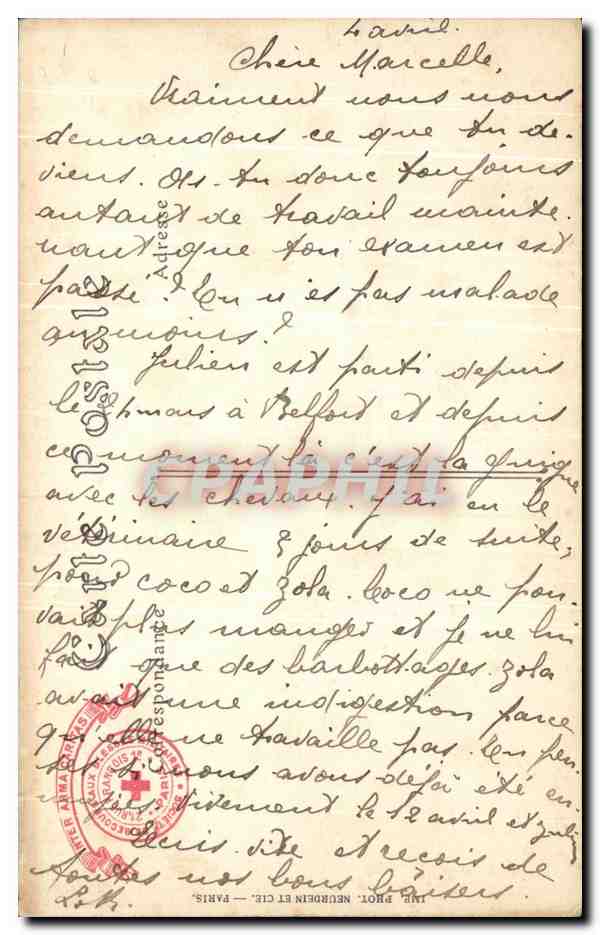 4 avril.
Chère Marcelle,
Vraiment nous nous
demandons ce que tu de-
viens. As-tu donc toujours
autant de travail mainte-
nant que ton examen est
passé? Tu n'es pas malade
au moins?
Julien est parti depuis
le mars à Belfort et depuis
ce moment là c'est la guigne
avec les chevaux. J'ai eu le
vétérinaire 3 jours de suite,
pour coco et Zola. Coco ne pou-
vait plus manger et je ne lui
fait que des barbottages. Zola
avait une indigestion parce
qu'elle ne travaille pas. Tu pen-
ses si nous avons déjà été en-
Vivement le 12 avril et Julien
Ecris vite et reçois de
toutes nos bons baisers.
Carte Postale
Adresse
Correspondance
INTER ARMA CARITAS
SOCIÉTÉ
SECOURS AUX BLESSÉS MILITAIRES
PARIS
IMP. PHOT. NEURDEIN ET CIE. — PARIS.
CPAPHIL